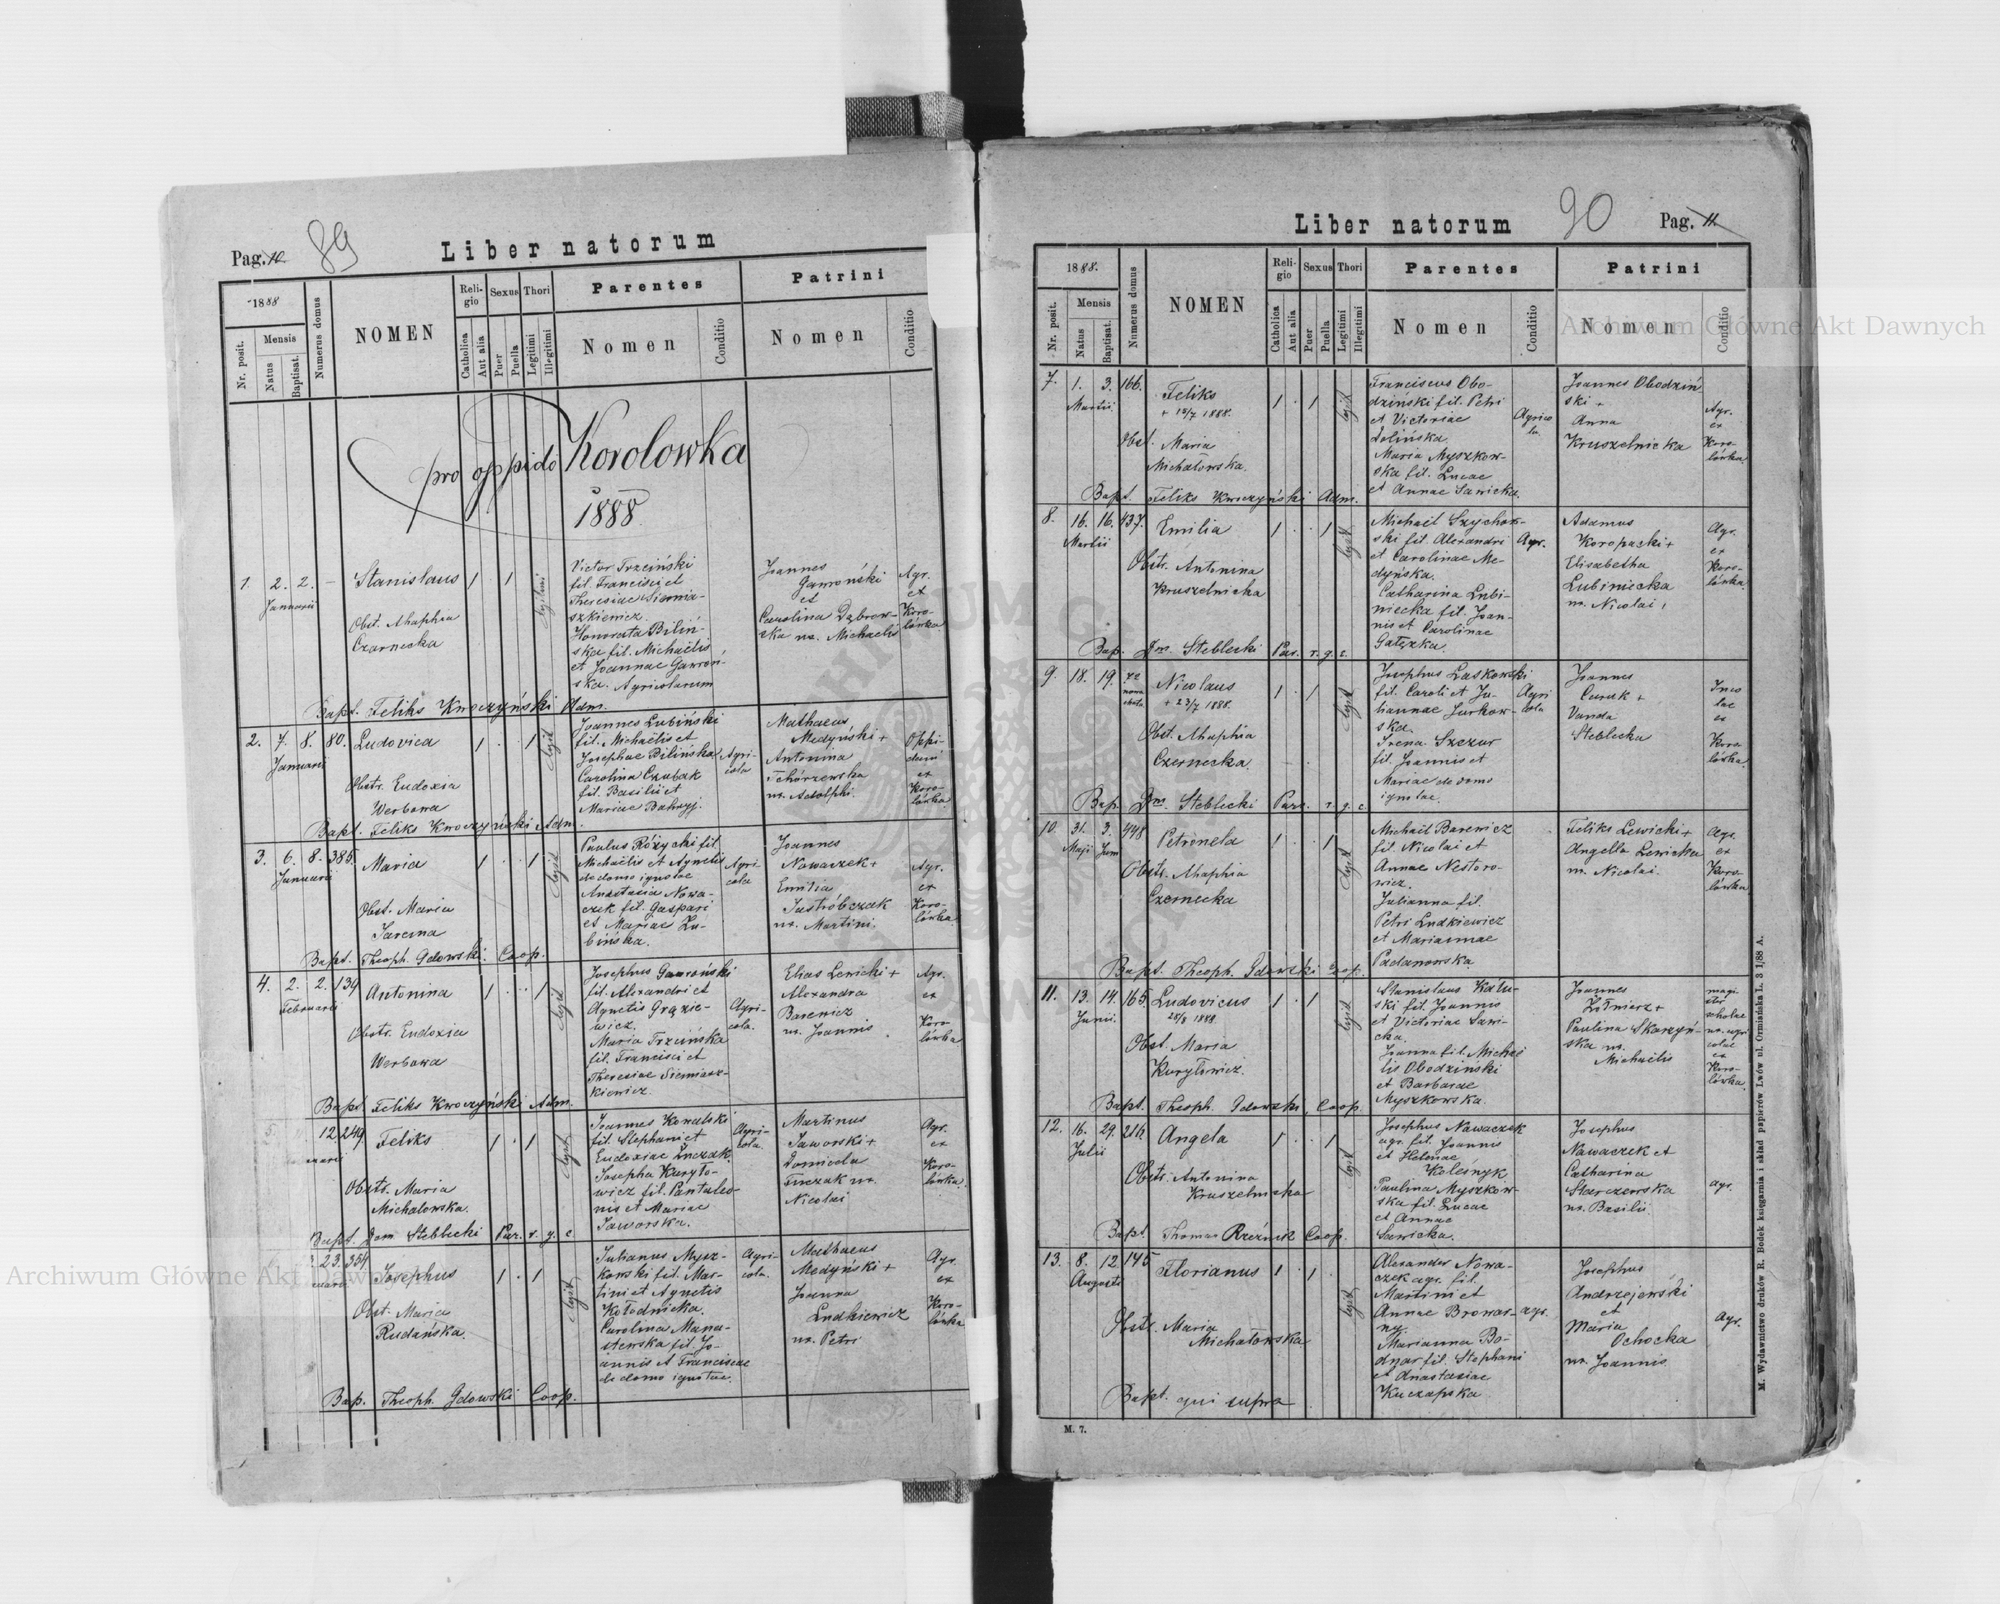 Pag. 10. 89
Liber natorum
1888
Nr. posit.
Mensis
Natus
Baptisat.
Numerus domus
NOMEN
Religio
Catholica
Aut alia
Sexus
Puer
Puella
Thori
Legitimi
Illegitimi
Parentes
Nomen
Conditio
Patrini
Nomen
Conditio
pro oppido Korolowka
1888.
1. 2. 2. –
Januarii
Stanislaus
1 1
Obst. Ahaphia
Czarnecka
Victor Trzciński
fil. Francisci et
Theresiae Siemia-
szkiewicz.
Honorata Biliń-
ska fil. Michaëlis
et Joannae Gawroń-
ska. Agricolarum
Joannes
Gawroński
et
Carolina Dąbrow-
ska ux. Michaelis
Agr.
et
Koro-
lówka
Bapt. Feliks Kwoczyński Adm.
2. 7. 8. 80.
Januarii
Ludovica
1 . . 1
legit
Obstr. Eudoxia
Werbowa
Joannes Lubiński
fil. Michaëlis et
Josephae Bilińska
Carolina Czubak
fil. Basilii et
Mariae Bahryj.
Agri-
cola
Mathaeus
Medyński +
Antonina
Tchórzewska
ux. Adolphi.
Oppi-
dani
ex
Koro-
lówka
Bapt. Feliks Kwoczyński Adm.
3. 6. 8. 385.
Januarii
Maria
1 . . 1
legit
Obst. Maria
Jarema
Paulus Różycki fil.
Michaëlis et Agnetis
de domo ignotae
Anastasia Nowa-
czek fil. Gaspari
et Mariae Lu-
bińska.
Agri-
cola
Joannes
Nowaczek +
Emilia
Jastróbczak
ux. Martini.
Agr.
ex
Koro-
lówka
Bapt. Theoph. Gdowski. Coop.
4. 2. 2. 134
Februarii
Antonina
1 . . 1
legit
Obstr. Eudoxia
Werbowa
Josephus Gawroński
fil. Alexandri et
Agnetis Grązie-
wicz.
Maria Trzcińska
fil. Francisci et
Theresiae Siemiasz-
kiewicz
Agri-
cola.
Elias Lewicki +
Alexandra
Barewicz
ux. Joannis
Agr.
ex
Koro-
lówka
Bapt. Feliks Kwoczyński Adm.
5. 12 249
Feliks
1 . 1
legit
Obstr. Maria
Michalowska.
Joannes Kowalski
fil. Stephani et
Eudoxiae Luczak.
Josepha Kuryło-
wicz fil. Pantaleo-
nis et Mariae
Jaworska.
Agri-
cola
Martinus
Jaworski +
Domicela
ux.
Nicolai
Agr.
ex
Koro-
lówka.
Bapt. Dom Steblecki Par. r. g. c
23. 354.
Josephus
1 . 1
legit
Obst. Maria
Rudańska.
Julianus Mysz-
kowski fil. Mar-
tini et Agnetis
Kołodnicka.
Carolina Mana-
sterska fil. Jo-
annis et Franciscae
de domo ignotae.
Agri-
cola.
Mathaeus
Medyński +
Joanna
Ludkiewicz
ux. Petri
Agr.
ex
Koro-
lówka
Bap. Theoph. Gdowski Coop.
Liber natorum 90 Pag. 11.
1888.
Nr. posit.
Mensis
Natus
Baptisat.
Numerus domus
NOMEN
Religio
Catholica
Aut alia
Sexus
Puer
Puella
Thori
Legitimi
Illegitimi
Parentes
Nomen
Conditio
Patrini
Nomen
Conditio
7. 1. 3. 166.
Martii
Feliks
+ 15/7 1888.
1 . 1
legit
Obst. Maria
Michałowska.
Franciscus Obo-
dziński fil. Petri
et Victoriae
Dolińska.
Maria Myszkow-
ska fil. Lucae
et Annae Sawicka.
Agrico
la.
Joannes Obodziń
ski +
Anna
Kruszelnicka
Agr.
ex
Koro-
lówka.
Bapt. Feliks Kwoczyński Adm.
8. 16. 16. 437.
Martii
Emilia
1 . . 1
legit
Obstr. Antonina
Kruszelnicka
Michaël Szychow-
ski fil. Alexandri
et Carolinae Me-
dyńska.
Catharina Lubi-
niecka fil. Joan-
nis et Carolinae
Gałązka.
Agr.
Adamus
Koropacki +
Elisabetha
Lubiniecka
ux. Nicolai.
Agr.
ex
Koro-
lówka.
Bap. Dom. Steblecki Par. r. g. c.
9. 18. 19. 42
Nicolaus
+ 23/7 1888.
1 . 1
legit
Obst. Ahaphia
Czernecka.
Josephus Laskowski
fil. Caroli et Ju-
liannae Jurkow-
ska.
Irena Szczur
fil. Joannis et
Mariae de domo
ignotae.
Agri
cola
Joannes
Curak +
Vanda
Steblecka
Inco
lae
ex
Koro
lówka.
Bap. Dom. Steblecki Par. r. g. c
10. 31. 3. 448
Maji Juni
Petronela
1 . . 1
legit
Obstr. Ahaphia
Czernecka
Michaël Barewicz
fil. Nicolai et
Annae Nestoro-
wicz.
Julianna fil.
Petri Ludkiewicz
et Mariannae
Padanowska.
Feliks Lewicki +
Angella Lewicka
ux. Nicolai.
Agr.
ex
Koro-
lówka
Bapt. Theoph. Gdowski Coop.
11. 13. 14. 165.
Junii.
Ludovicus
25/8 1888.
1 . 1
legit
Obst. Maria
Kuryłowicz.
Stanislaus Kału-
ski fil. Joannis
et Victoriae Sawi-
cka.
Joanna fil. Michaë
lis Obodziński
et Barbarae
Myszkowska.
Joannes
Żołnierz +
Paulina Skarzyń-
ska ux.
Michaëlis
magi
ster
scholae
ux. agri
colae
ex
Koro-
lówka.
Bapt. Theoph. Gdowski, Coop.
12. 16. 29. 216.
Julii
Angela
1 . . 1
legit
Obstr. Antonina
Kruszelnicka
Josephus Nawaczek
agr. fil. Joannis
et Helenae
Koleśnyk
Paulina Myszkow-
ska fil. Lucae
et Annae
Sawicka.
Josephus
Nawaczek et
Catharina
Starczewska
ux. Basilii.
agr.
Bapt. Thomas Rzeźnik Coop.
13. 8. 12 145
Augusti
Florianus
1 . 1
legit
Obstr. Maria
Michałowska
Alexander Nowa-
czek agr. fil.
Martini et
Annae Browar-
ny.
Marianna Bo-
dnar fil. Stephani
et Anastasiae
Kuczapska
agr.
Josephus
Andrzejewski
et
Maria
Ochocka
ux. Joannis.
Agr.
Bapt. qui supra
M. 7.
M. Wydawnictwo druków R. Bodek księgarnia i skład papierów Lwów ul. Ormiańska L. 3 1/88 A.
Archiwum Główne Akt Dawnych
Archiwum Główne Akt Dawnych